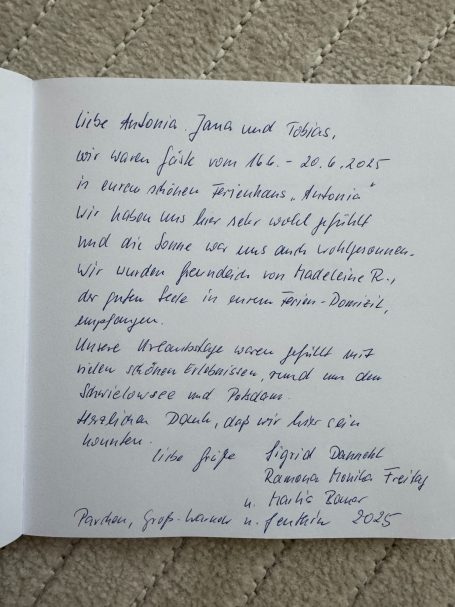 Liebe Antonia, Jana und Tobias,
wir waren Gäste vom 16.6. - 20.6.2025
in eurem schönen Ferienhaus "Antonia"
Wir haben uns hier sehr wohl gefühlt
und die Sonne war uns auch wohlgesonnen.
Wir wurden freundlich von Madeleine R.,
der guten Seele in eurem Ferien-Domizil,
empfangen.
Unsere Urlaubstage waren gefüllt mit
vielen schönen Erlebnissen, rund um den
Schwielowsee und Potsdam.
Herzlichen Dank, daß wir hier sein
konnten.
liebe Grüße Sigrid
Ramona Monika Freitag
u. Marlis
Parchen, u. Genthin 2025